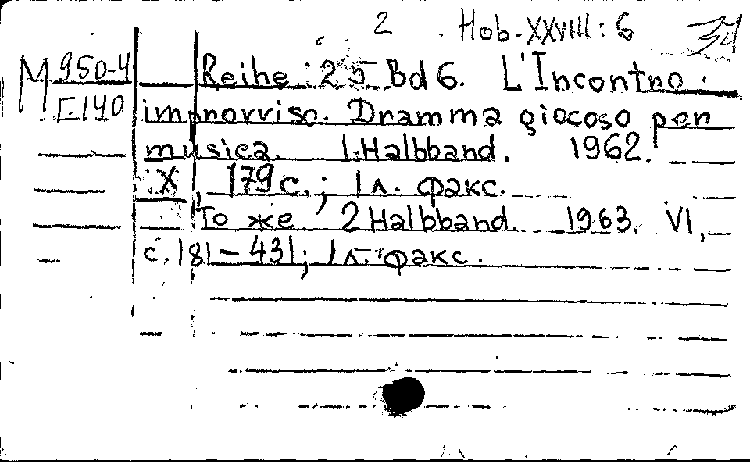 2 Hob.XXVIII:6 31
М 950-4 Reihe:25 Bd 6. L'Incontro
Г140 improvviso. Dramma giocoso per
musica. 1.Halbband. 1962.
X, 179 с.; 1 л. факс.
То же 2 Halbband. 1963. VI,
с. 181-431; 1 л. факс.